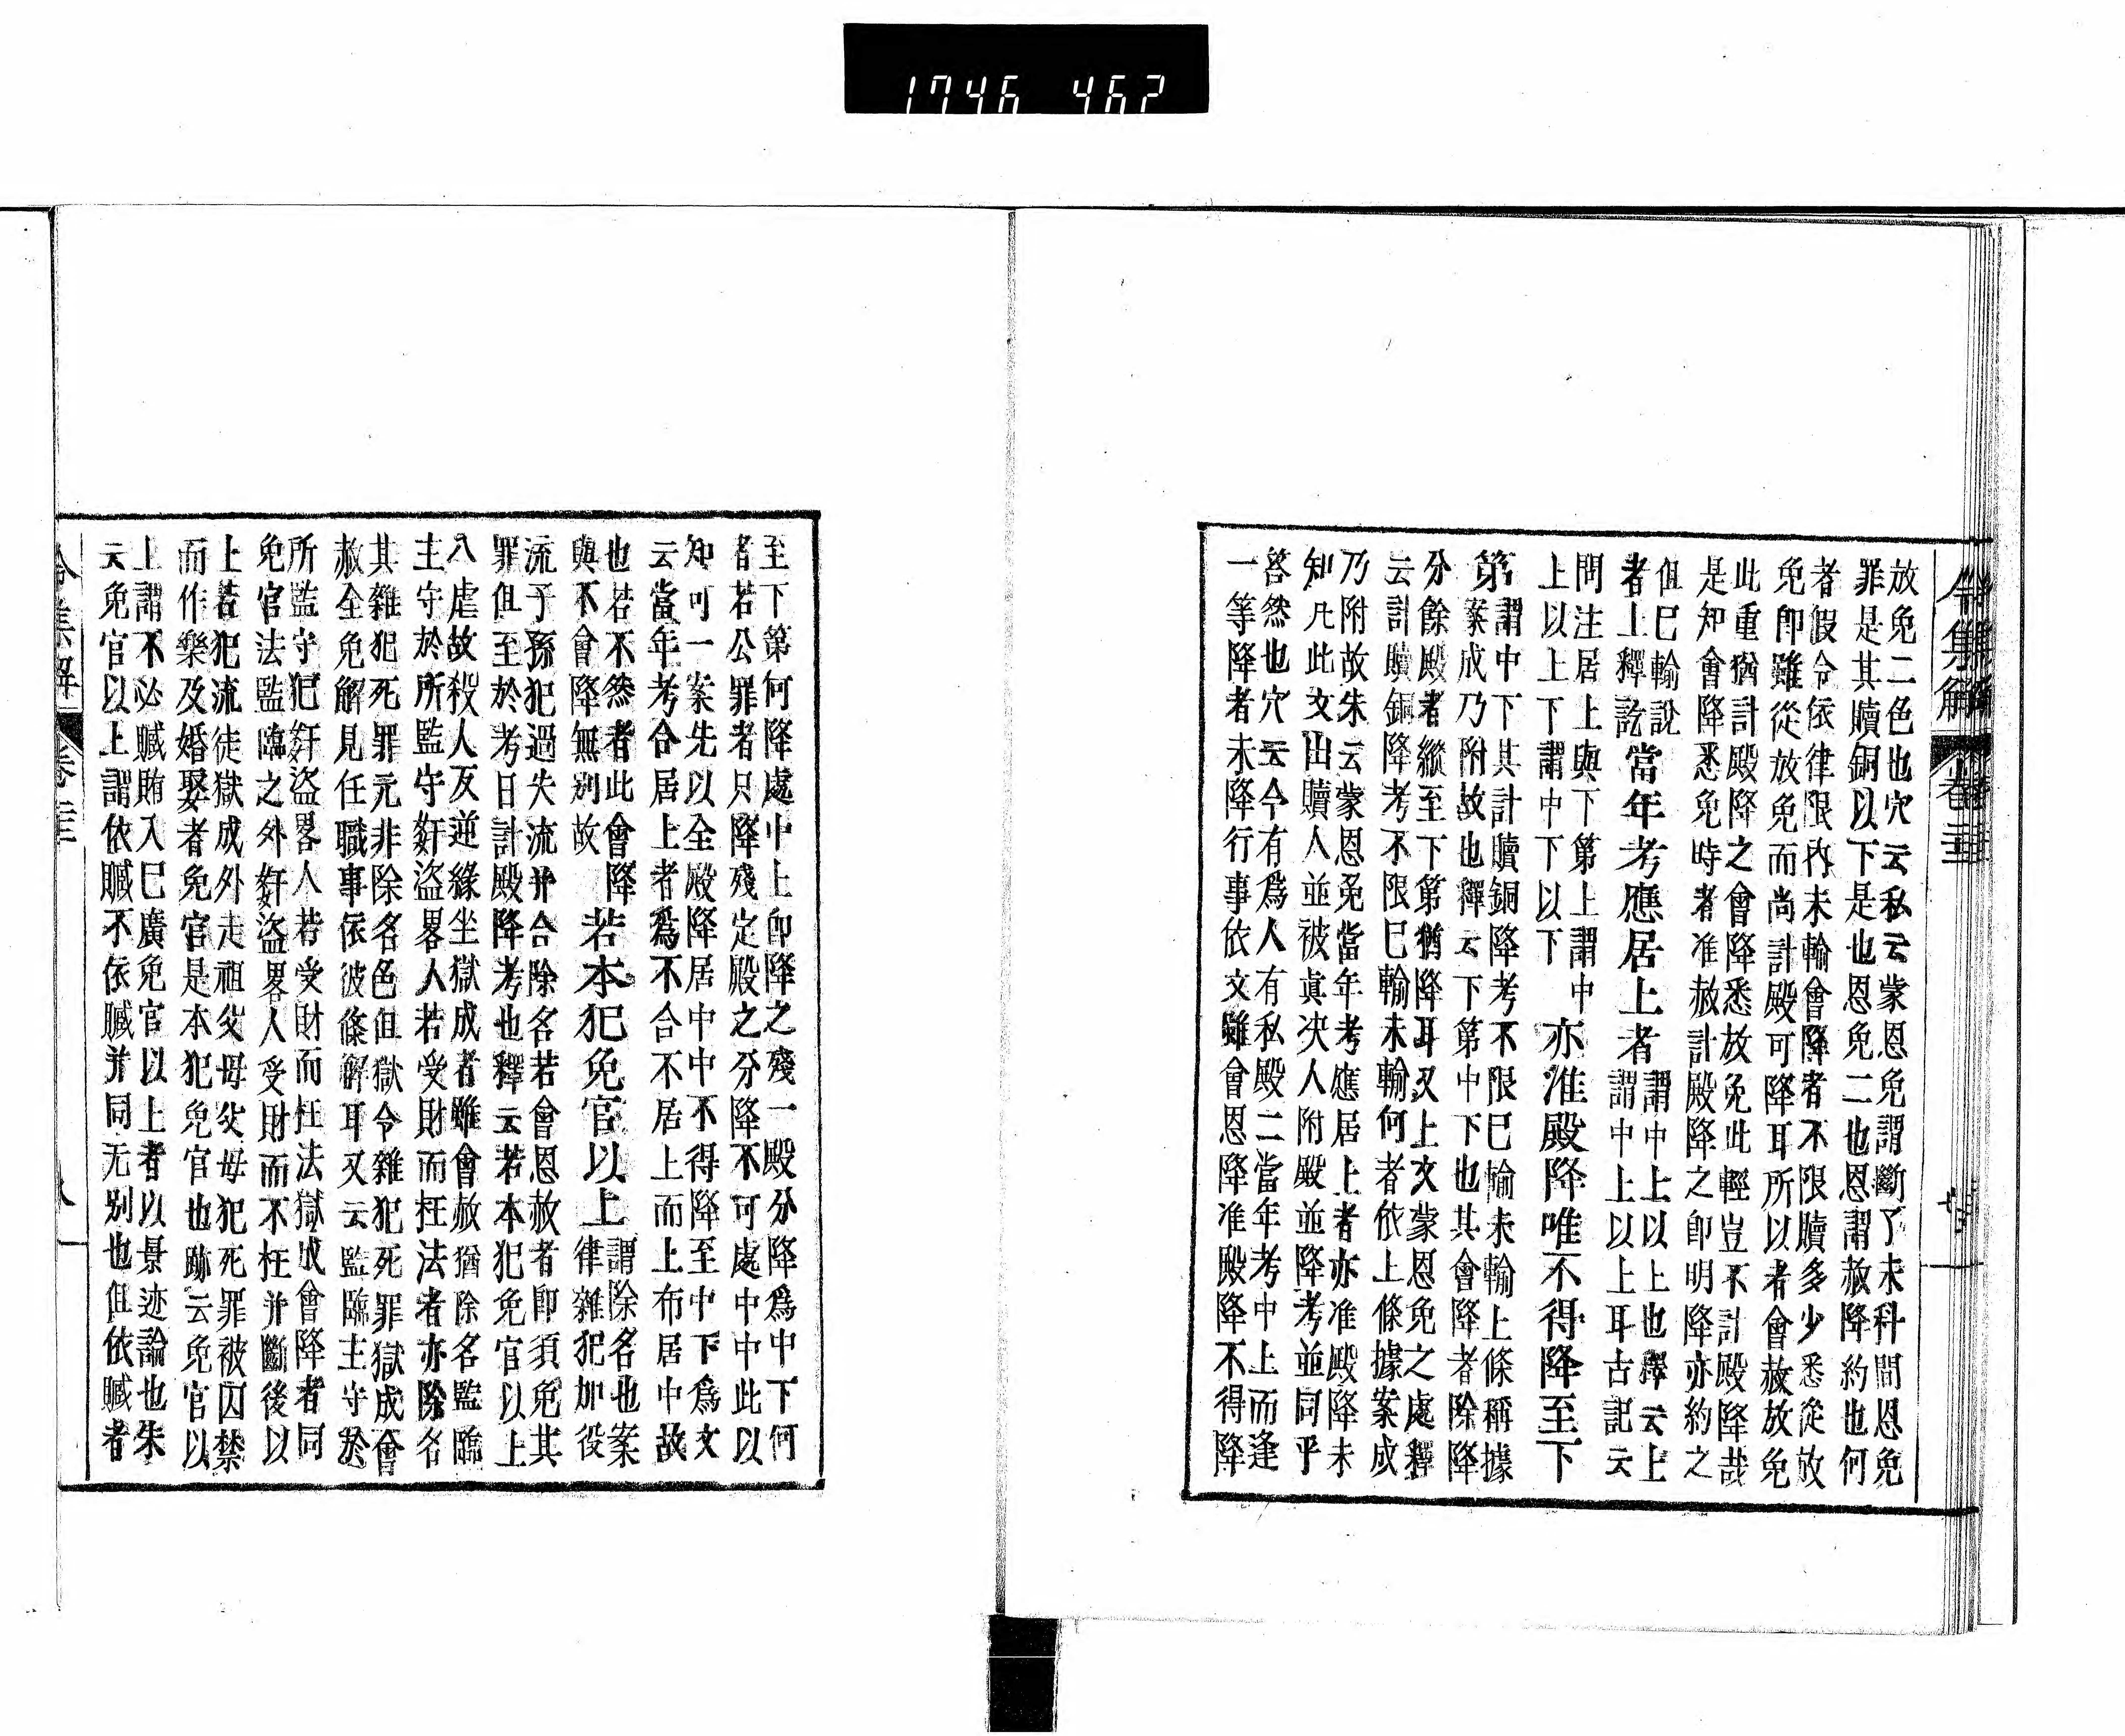 1746 462
令集解 卷二十二
放免二色也穴云私云蒙恩免謂斷了未科間恩免
罪是其贖銅以下是也恩免二也恩謂赦降約也何
者假令依律限内未輸會降者不限贖多少悉從放
免即雖從放免而尚計殿可降耳所以者會赦放免
此重猶計殿降之會降悉放免此輕豈不計殿降哉
是知會降悉免時者准赦計殿降之即明降亦約之
但已輸說
者上釋訖當年考應居上者謂中上以上也釋云上
謂中上以上耳古記云
問注居上與下第上謂中
上以上下謂中下以下亦准殿降唯不得降至下
第謂中下其計贖銅降考不限已輸未輸上條稱據
案成乃附故也釋云下第中下也其會降者除降
分餘殿者縱至下第猶降耳又上文蒙恩免之處釋
云計贖銅降考不限已輸未輸何者依上條據案成
乃附故朱云蒙恩免當年考應居上者亦准殿降未
知凡此文出贖人並被真决人附殿並降考並同乎
答然也穴云今有爲人有私殿二當年考中上而逢
一等降者未降行事依文雖會恩降准殿降不得降
至下第何降處中上即降之殘一殿分降爲中下何
者若公罪者只降殘定殿之分降不可處中中此以
知可一案先以全殿降居中中不得降至中下爲文
云當年考合居上者爲不合不居上而上布居中故
也若不然者此會降
與不會降無別故若本犯免官以上謂除名也案
律雜犯加役
流子孫犯過失流并合除名若會恩赦者即須免其
罪但至於考日計殿降考也釋云若本犯免官以上
八虐故殺人反逆緣坐獄成者雖會赦猶除名監臨
主守於所監守姧盜畧人若受財而枉法者亦除名
其雜犯死罪元非除名色但獄令雜犯死罪獄成會
赦全免解見任職事依彼條解耳又云監臨主守於
所監守犯姧盜畧人若受財而枉法獄成會降者同
免官法監臨之外姧盜畧人受財而不枉并斷後以
上若犯流徒獄成外走祖父母父母犯死罪被囚禁
而作樂及婚娶者免官是本犯免官也跡云免官以
上謂不必贓賄入已廣免官以上者以景迹論也朱
云免官以上謂依贓不依贓并同无别也但依贓者
令集解 卷二十二 八